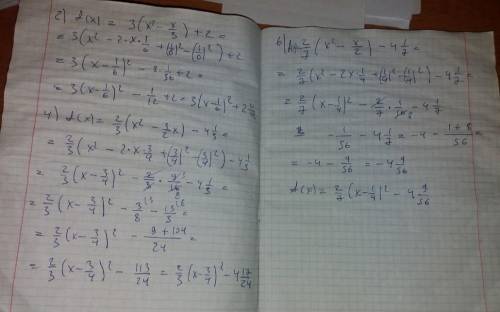 2) f(x) = 3(x² - x/3) + 2 =
= 3(x² - 2·x·1/6 + (1/6)² - (1/6)²) + 2
= 3(x - 1/6)² - 3·1/36 + 2 =
= 3(x - 1/6)² - 1/12 + 2 = 3(x - 1/6)² +
4) f(x) = 2/3(x² - 3/2x) - 4 1/3 =
= 2/3(x² - 2·x·3/4 + (3/4)² - (3/4)²) - 4 1/3
= 2/3(x - 3/4)² - 2/3·9/16 - 4 1/3 =
= 2/3(x - 3/4)² - 3/8 - 13/3 =
= 2/3(x - 3/4)² - (9 + 104)/24 =
= 2/3(x - 3/4)² - 113/24 = 2/3(x - 3/4)² - 4 17/24
6) 2/7(x² - x/2) - 4 1/7 =
= 2/7(x² - 2x·1/4 + (1/4)² - (1/4)²) - 4 1/7 =
= 2/7(x - 1/4)² - 2/7·1/16 - 4 1/7
- 1/56 - 4 1/7 = -4 - (1 + 8)/56 =
= -4 - 9/56 = -4 9/56
f(x) = 2/7(x - 1/4)² - 4 9/56